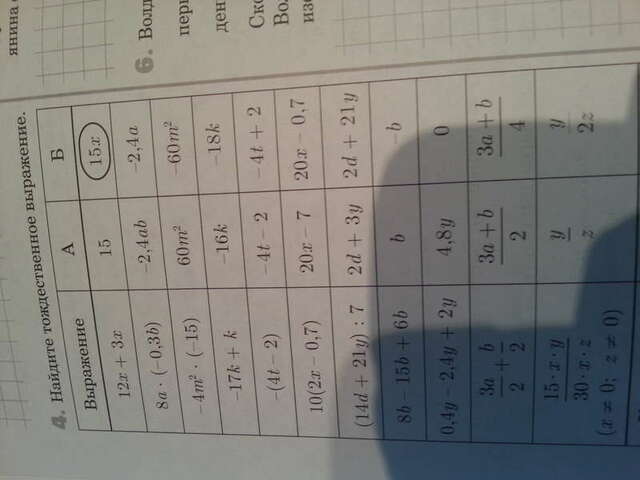 4. Найдите тождественное выражение.
Выражение А Б
12x + 3x 15 15x
8a · (−0,3b) −2,4ab −2,4a
−4m² · (−15) 60m² −60m²
−17k + k −16k −18k
−(4t − 2) −4t − 2 −4t + 2
10(2x − 0,7) 20x − 7 20x − 0,7
(14d + 21y) : 7 2d + 3y 2d + 21y
8b − 15b + 6b b −b
0,4y − 2,4y + 2y 4,8y 0
3a/2 + b/2 (3a + b)/2 (3a + b)/4
(15 · x · y)/(30 · x · z) y/z y/2z
(x ≠ 0; z ≠ 0)
янина
6. Волд
пери
ден
Ско
Вол
изо